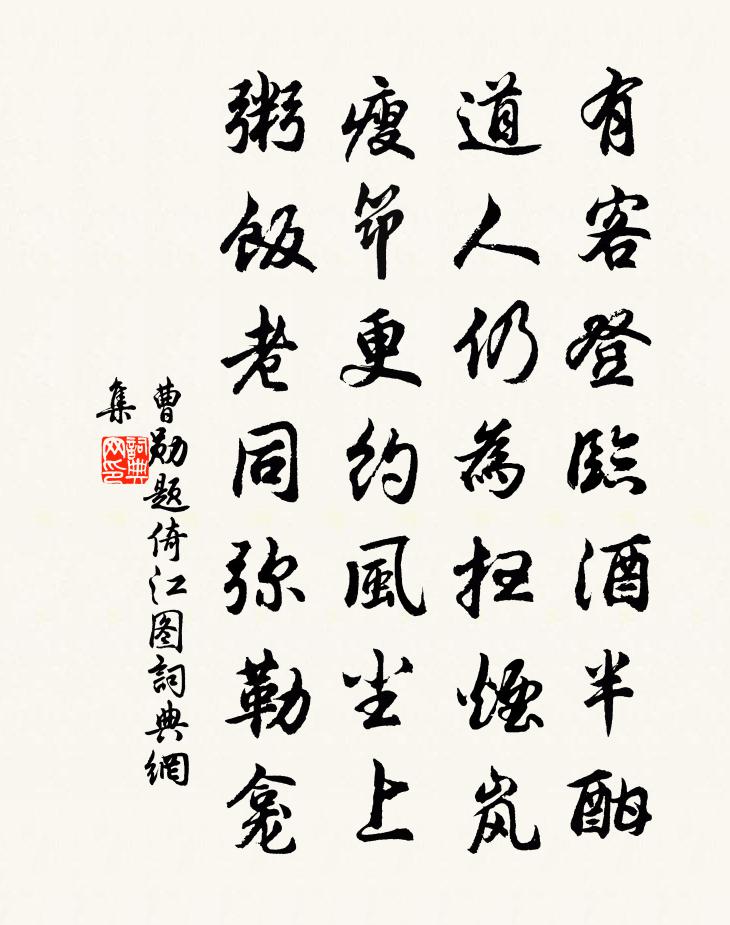 有客登臨酒半酣
道人仍為扫煙岚
瘦笻更約風尘上
粥飯老同弥勒龛
曹勛题倚江图詞典網
集
詞典网印